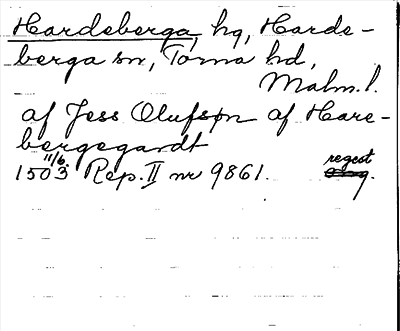 Hardeberga, hg, Harde-
berga sn, Torna hd,
Malm. l.
af Jess Olufsøn af Hare-
bergegardt
1503 11/6. Rep. II nr 9861. regest